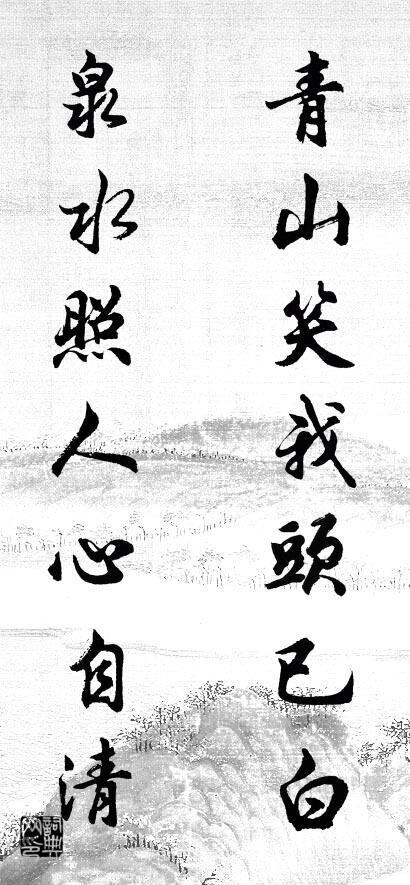 青山笑我頭已白
泉水照人心自清